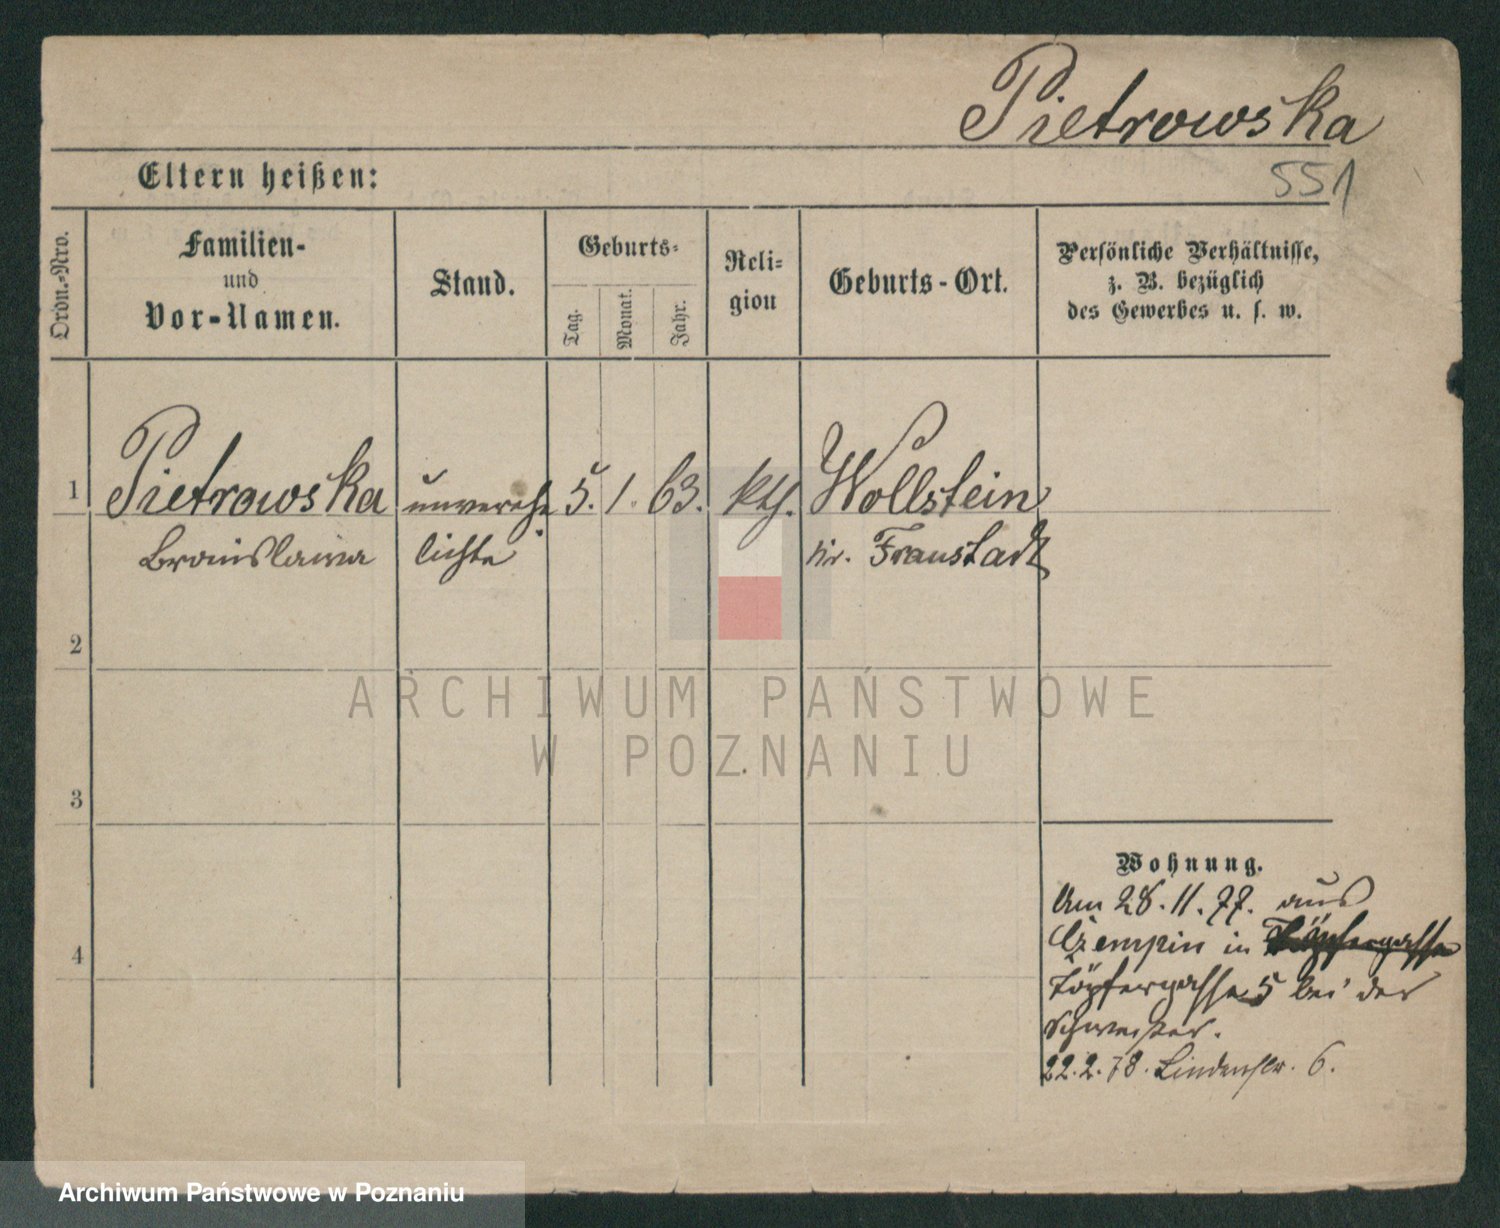 Pietrowska
551
Eltern heißen:
Ordn.-Nro.
Familien-
und
Vor-Namen.
Stand.
Geburts-
Tag.
Monat.
Jahr.
Reli-
gion
Geburts-Ort.
Persönliche Verhältnisse,
z. B. bezüglich
des Gewerbes u. s. w.
1 Pietrowska unvereh 5. 1. 63. kth. Wollstein
Bronislawa lichte Kr. Fraustadt
2
3
4
ARCHIWUM PAŃSTWOWE
W POZNANIU
Wohnung.
Am 28.11.77. aus
Czempin in Töpfergasse
Töpfergasse 5 bei der
Schwester.
22.2.78. Lindenstr. 6.
Archiwum Państwowe w Poznaniu